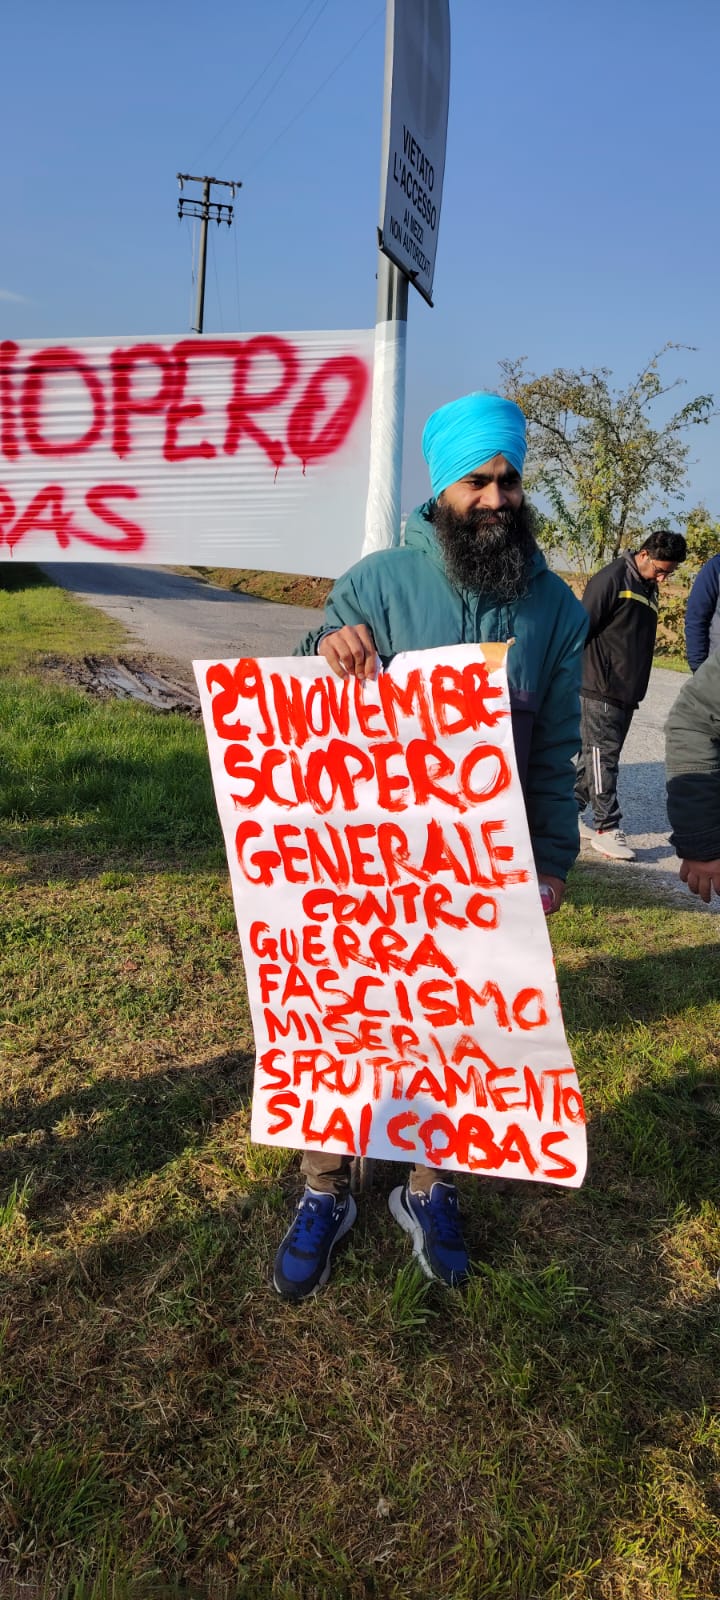 VIETATO
L'ACCESSO
AI MEZZI
NON AUTORIZZATI
IOPERO
RAS
29 NOVEMBRE
SCIOPERO
GENERALE
CONTRO
GUERRA
FASCISMO
MISERIA
SFRUTTAMENTO
SLAI COBAS